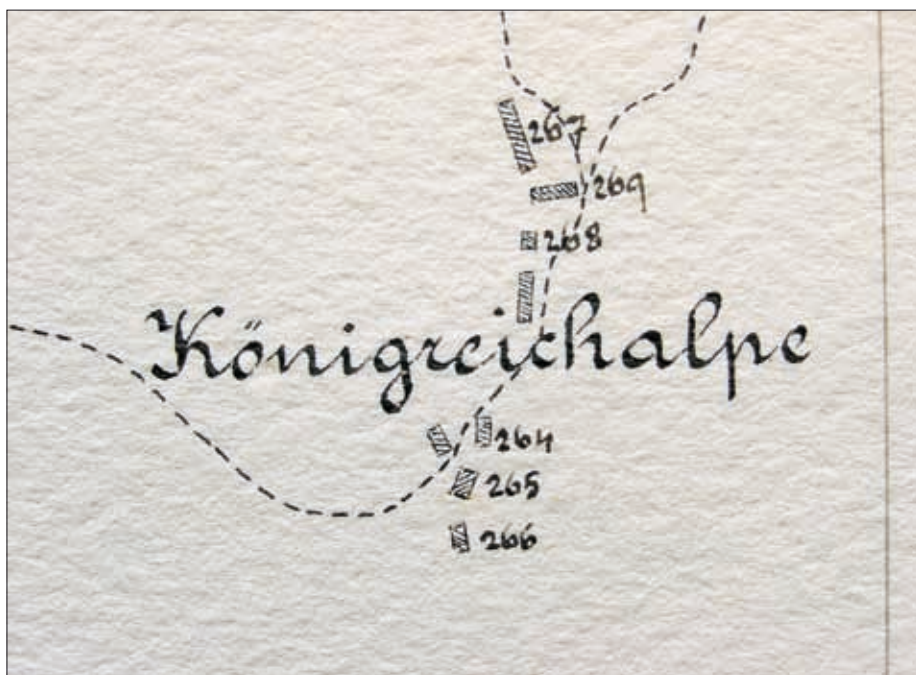 267
269
268
Königreichalpe
264
265
266